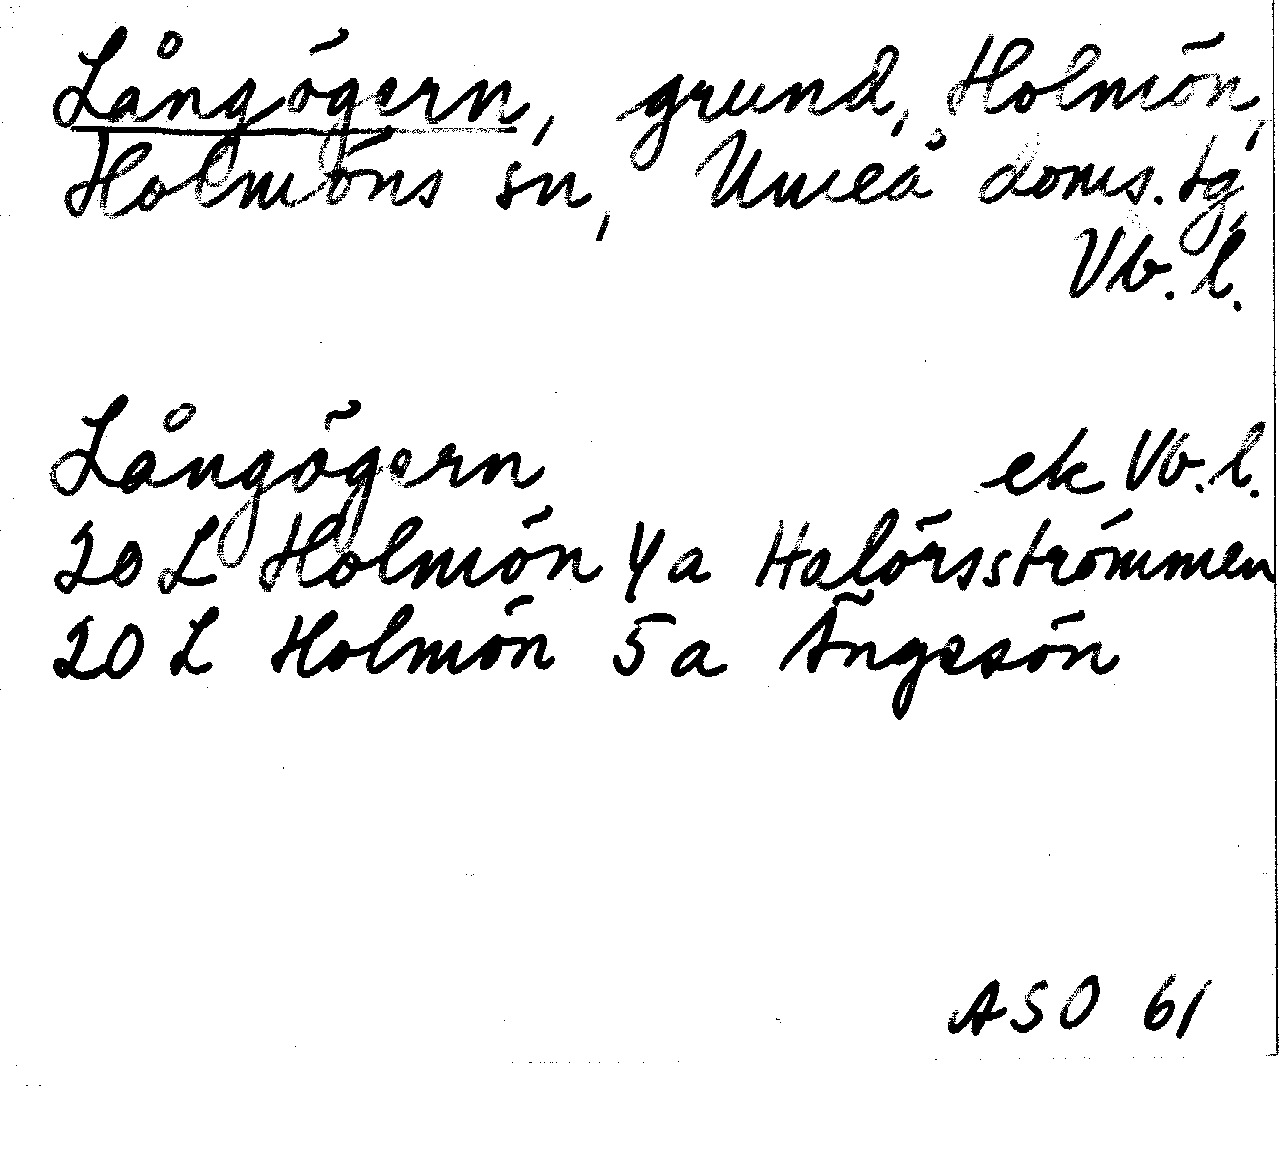 Långögern, grund, Holmön,
Holmöns sn, Umeå doms. tg,
Vb. l.
Långögern ek Vb. l.
20 L Holmön 4 a Halörsströmmen
20 L Holmön 5 a Ängesön
ASO 61